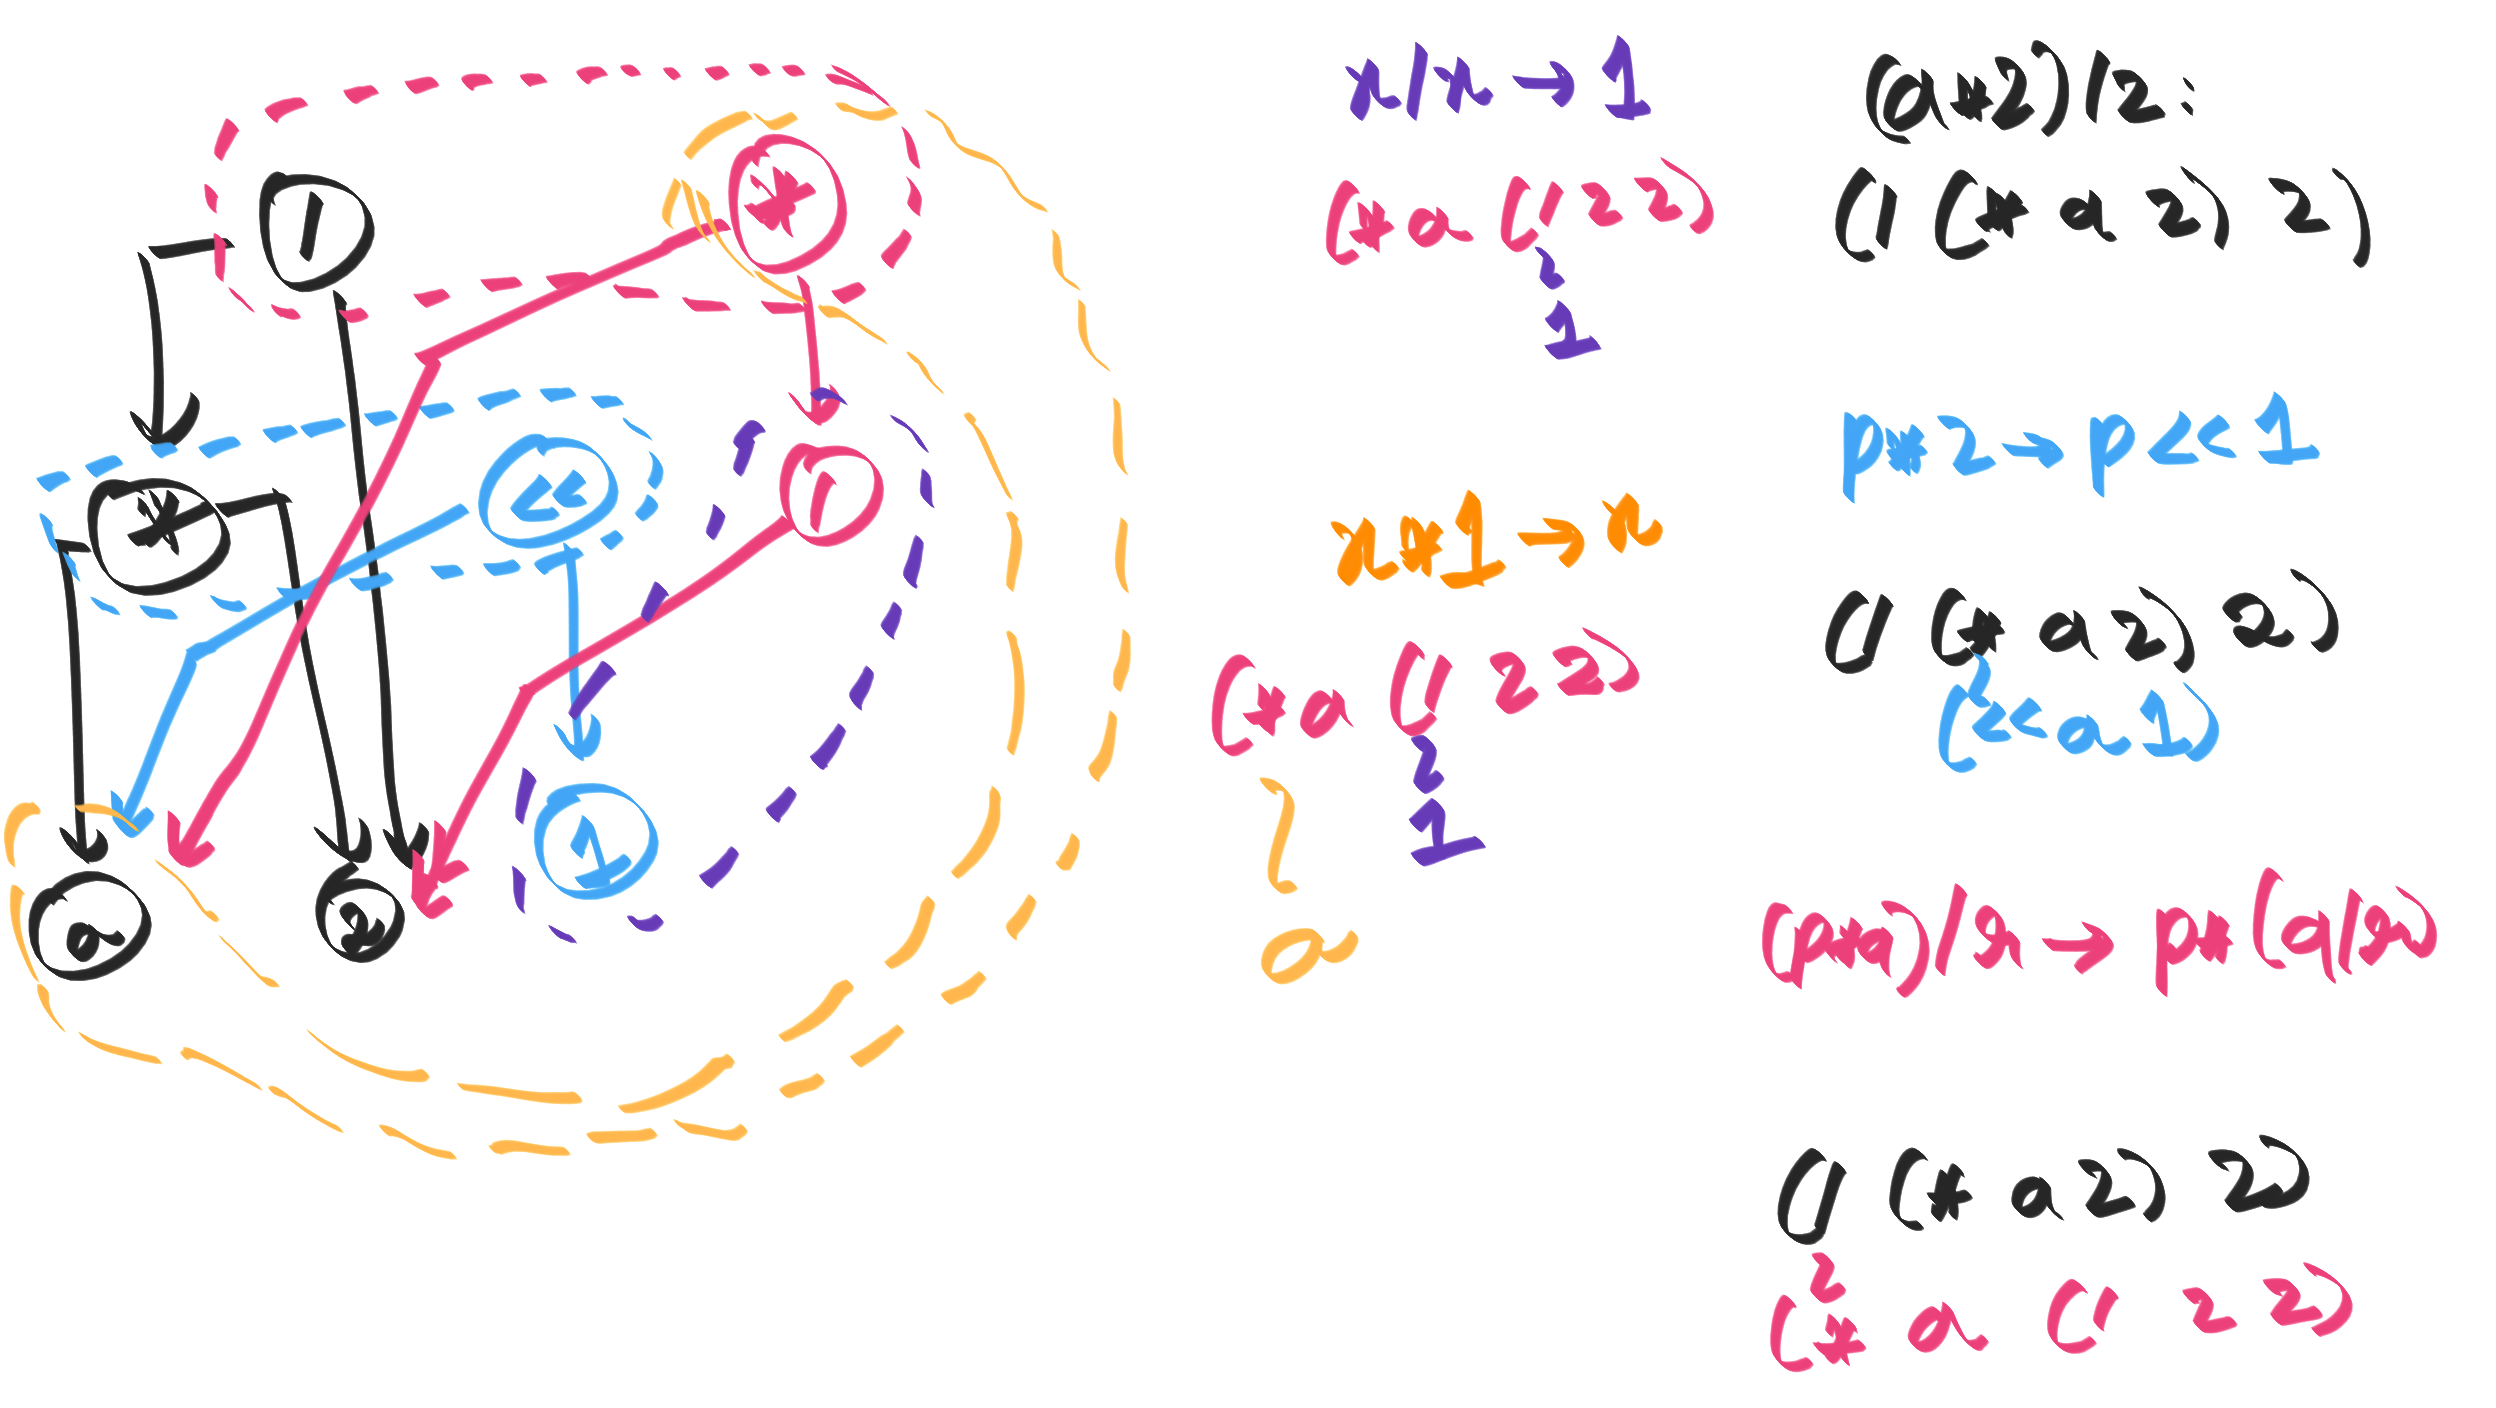 /
*
*
<<
/
a
2
1
x/x → 1
(* a (/ 2 2))
1
x*1 → x
(* a (/ 2 2))
1
a
(a*2)/2:
(/ (* a 2) 2)
p*2 → p << 1
(/ (* a 2) 2)
(<< a 1)
(p*q)/r → p*(q/r)
(/ (* a 2) 2)
(* a (/ 2 2))